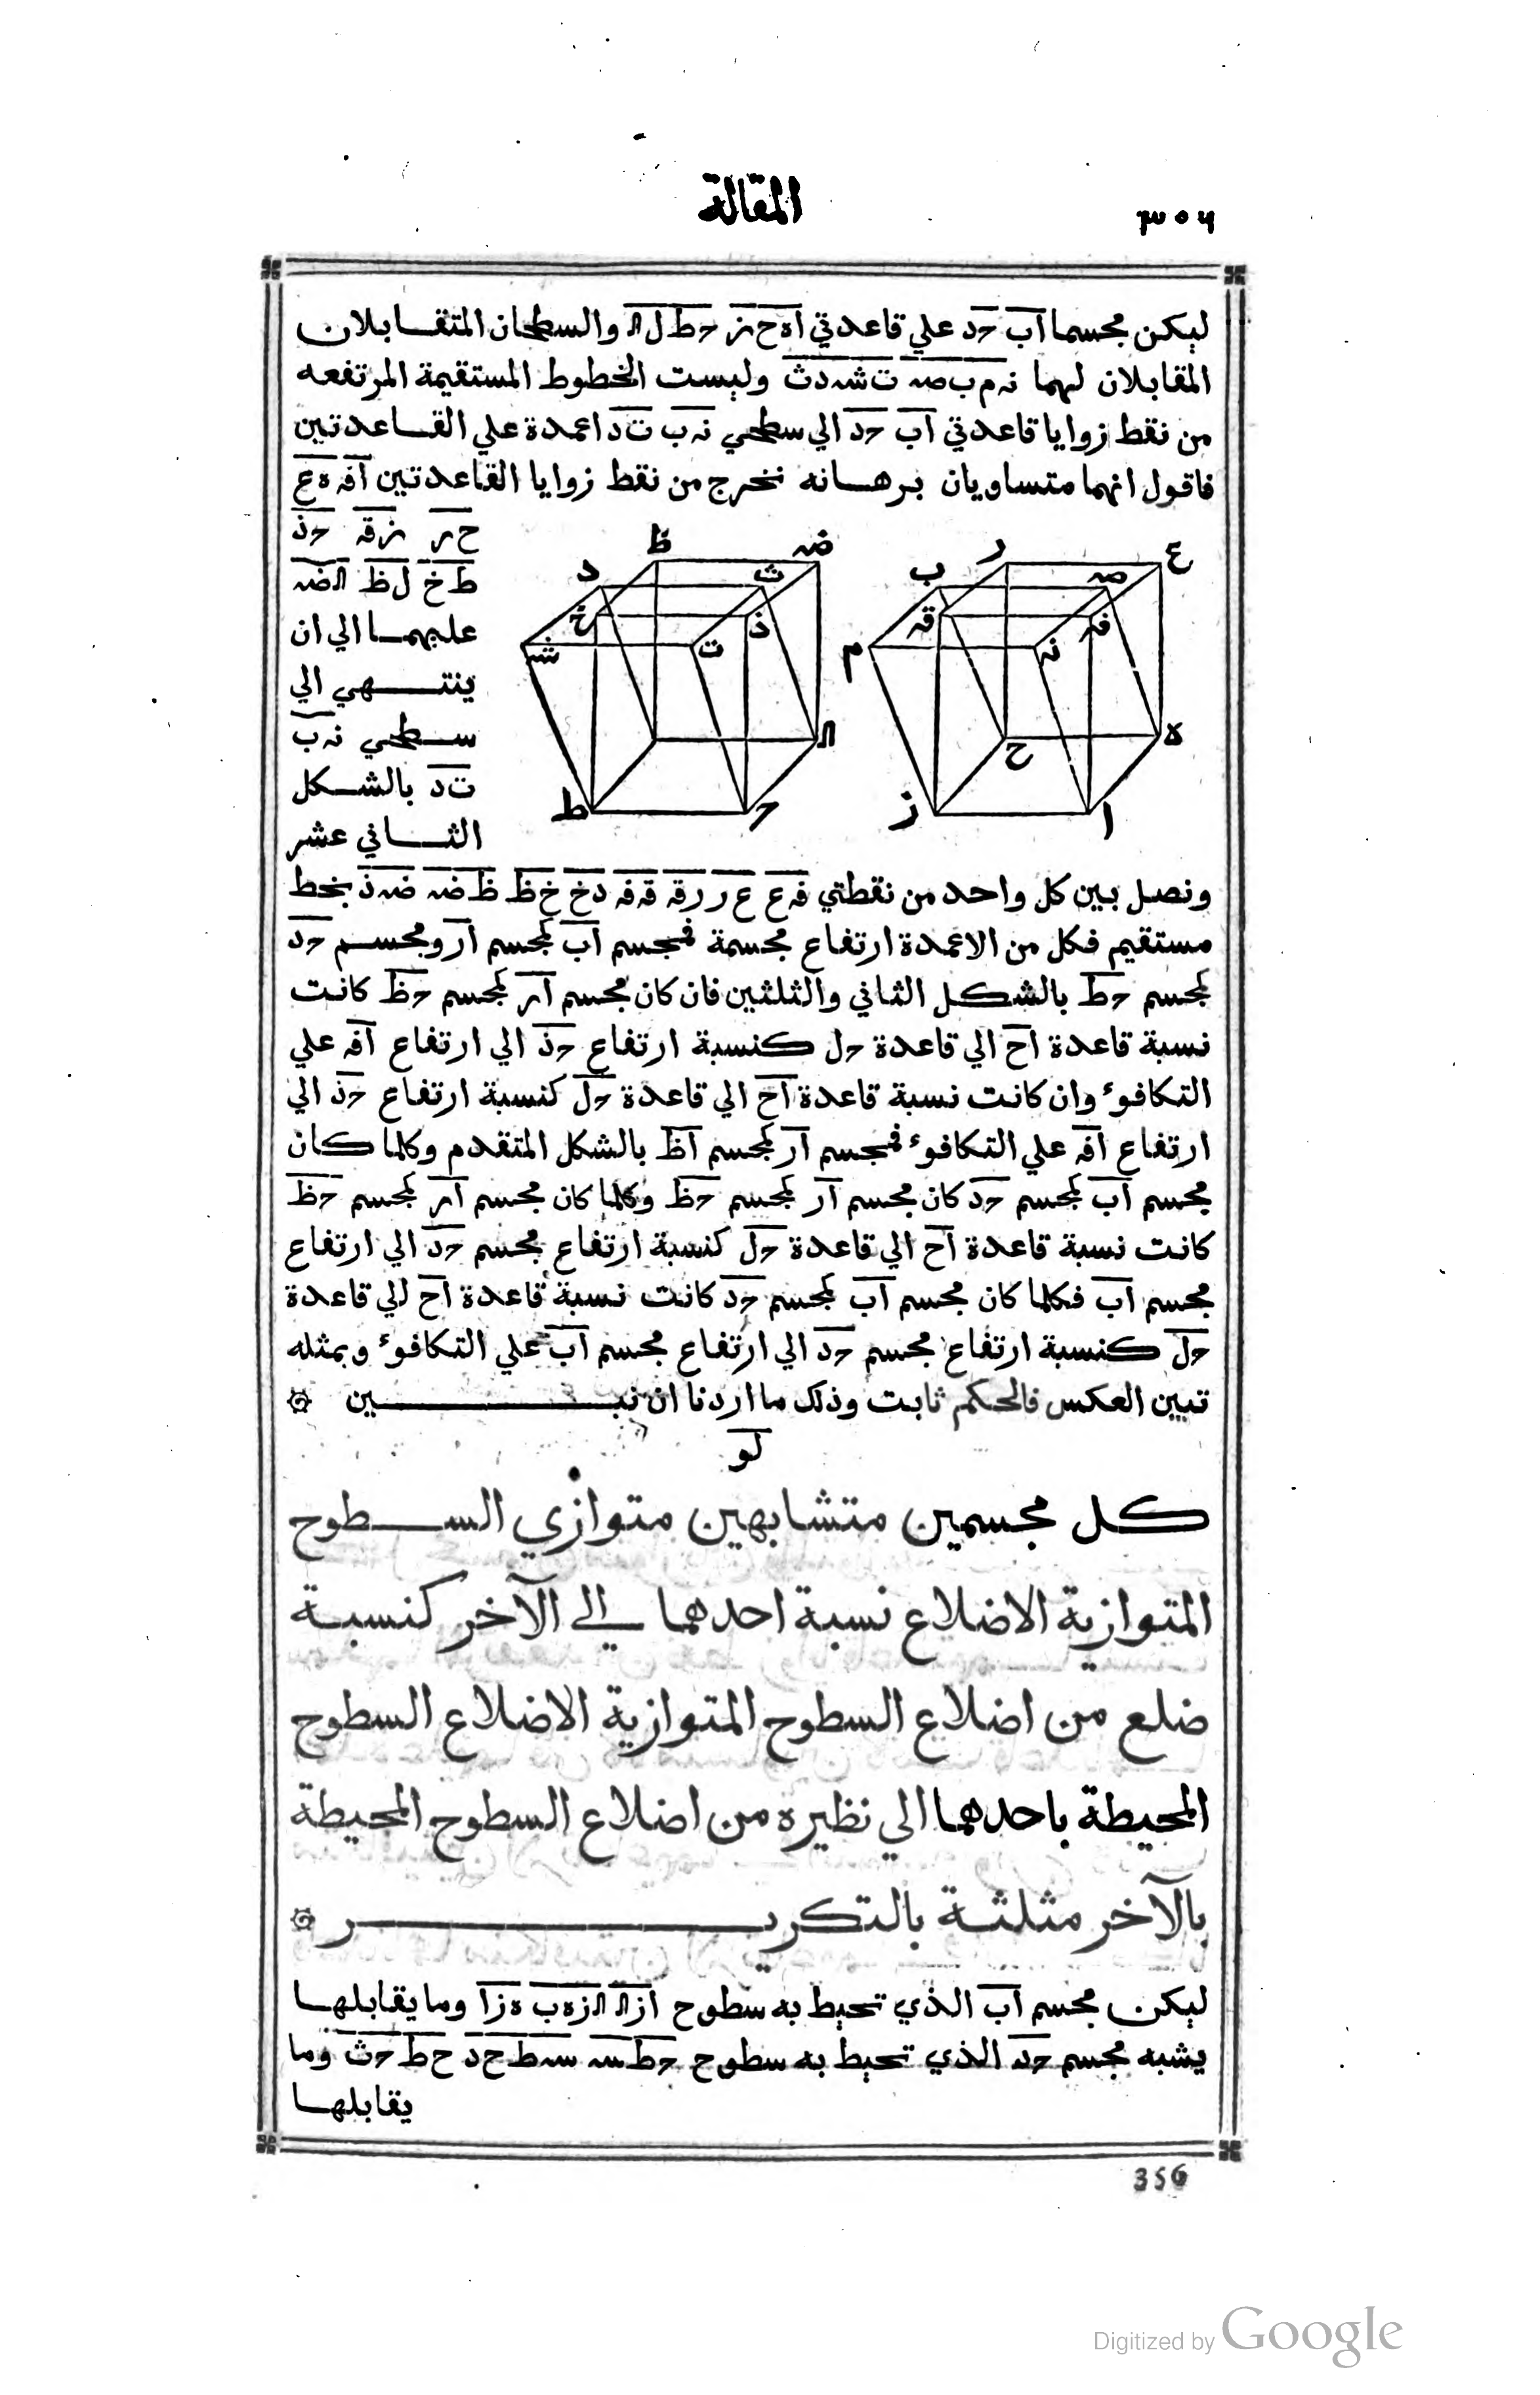 ٣٥٦
المقالة
ليكن مجسما اب حد علي قاعدتي اه ح ز حط ل ك والسطحان المتقابلان
المقابلان لهما ن م ب ص ت ش د ث وليست الخطوط المستقيمة المرتفعه
من نقط زوايا قاعدتي اب حد الي سطحي ن ب ت د اعمدة علي القاعدتين
فاقول انهما متساويان برهانه نخرج من نقط زوايا القاعدتين اف ه ع
ح ر ز ق ح ذ
ط خ ل ظ ك ض
عليهما الي ان
ينتهي الي
سطحي ن ب
ت د بالشكل
الثاني عشر
ع
ر
ص
ب
ف
ق
ن
م
ه
ح
ا
ز
ض
ظ
ث
د
ذ
خ
ت
ش
ك
ح
ط
ونصل بين كل واحد من نقطتي ف ع ع ر ر ق ق ف ذ خ خ ظ ظ ض ض ذ بخط
مستقيم فكل من الاعمدة ارتفاع مجسمة فمجسم اب لمجسم ار ومجسم حد
لمجسم حظ بالشكل الثاني والثلثين فان كان مجسم ار لمجسم حظ كانت
نسبة قاعدة اح الي قاعدة حل كنسبة ارتفاع حذ الي ارتفاع اف علي
التكافوء وان كانت نسبة قاعدة اح الي قاعدة حل كنسبة ارتفاع حذ الي
ارتفاع اف علي التكافوء فمجسم ار لمجسم اظ بالشكل المتقدم وكلما كان
مجسم اب لمجسم حد كان مجسم ار لمجسم حظ وكلما كان مجسم ار لمجسم حظ
كانت نسبة قاعدة اح الي قاعدة حل كنسبة ارتفاع مجسم حد الي ارتفاع
مجسم اب فكلما كان مجسم اب لمجسم حد كانت نسبة قاعدة اح الي قاعدة
حل كنسبة ارتفاع مجسم حد الي ارتفاع مجسم اب علي التكافوء وبمثله
تبين العكس فالحكم ثابت وذلك ما اردنا ان نبين
لو
كل مجسمين متشابهين متوازي السطوح
المتوازية الاضلاع نسبة احدهما الي الآخر كنسبة
ضلع من اضلاع السطوح المتوازية الاضلاع السطوح
المحيطة باحدهما الي نظيره من اضلاع السطوح المحيطة
بالآخر مثلثة بالتكرير
ليكن مجسم اب الذي تحيط به سطوح ازك ك زه ب ه زا وما يقابلها
يشبه مجسم حد الذي تحيط به سطوح حط س س ط ح د ح ط ح ث وما
يقابلها
356
Digitized by Google